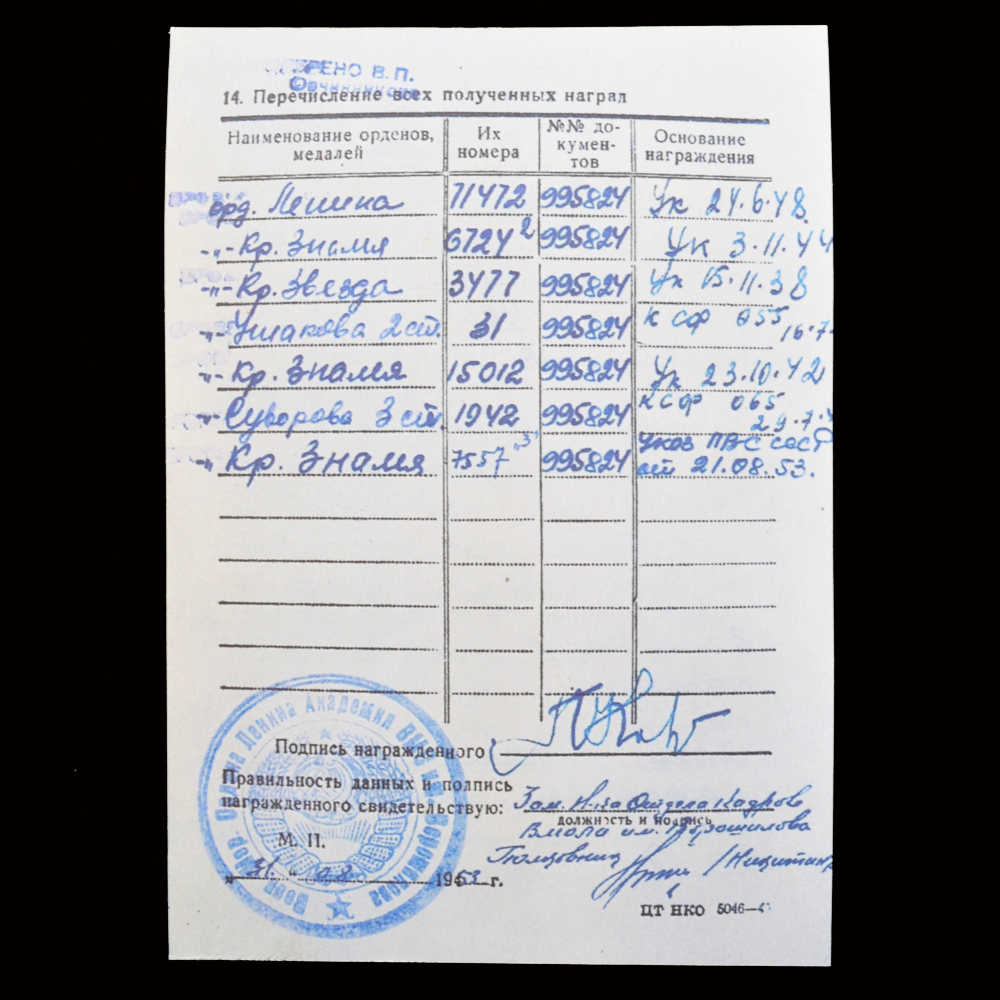 РЕНО В. П.
Овчинникова
14. Перечисление всех полученных наград
Наименование орденов, медалей
Их номера
№№ до-кумен-тов
Основание награждения
орд. Ленина 71472 995824 Ук 24.6.48
-"- Кр. Знамя 6724 2 995824 Ук 3.11.44
-"- Кр. Звезда 3477 995824 Ук 15.11.38
-"- Ушакова 2 ст. 31 995824 К СФ 055 16.7
-"- Кр. Знамя 15012 995824 Ук 23.10.42
-"- Суворова 3 ст. 1942 995824 К СФ 065 29.7.
-"- Кр. Знамя 7557 "3" 995824 Указ ПВС СССР от 21.08.53.
Подпись награжденного
Правильность данных и подпись
награжденного свидетельствую: Зам. Н-ка Отдела Кадров
должность и подпись
ВМОЛА им. Ворошилова
М. П.
31 " 08 1953 г.
ЦТ НКО 5046—4
Ордена Ленина Академия ВМС им. Ворошилова